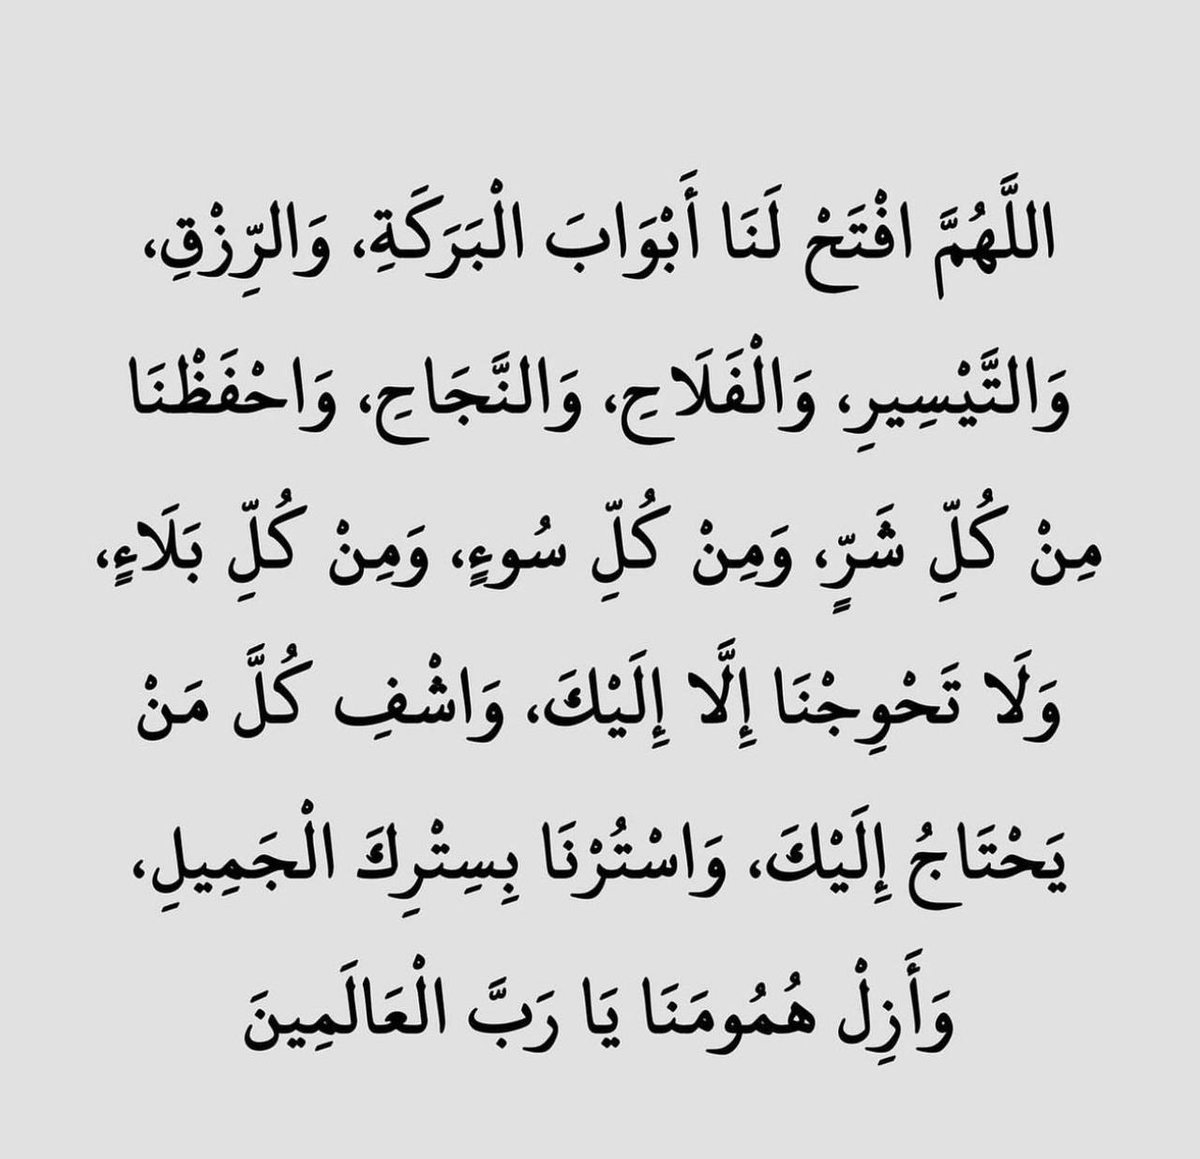 اللَّهُمَّ افْتَحْ لَنَا أَبْوَابَ الْبَرَكَةِ، وَالرِّزْقِ،
وَالتَّيْسِيرِ، وَالْفَلَاحِ، وَالنَّجَاحِ، وَاحْفَظْنَا
مِنْ كُلِّ شَرٍّ، وَمِنْ كُلِّ سُوءٍ، وَمِنْ كُلِّ بَلَاءٍ،
وَلَا تَحْوِجْنَا إِلَّا إِلَيْكَ، وَاشْفِ كُلَّ مَنْ
يَحْتَاجُ إِلَيْكَ، وَاسْتُرْنَا بِسِتْرِكَ الْجَمِيلِ،
وَأَزِلْ هُمُومَنَا يَا رَبَّ الْعَالَمِينَ